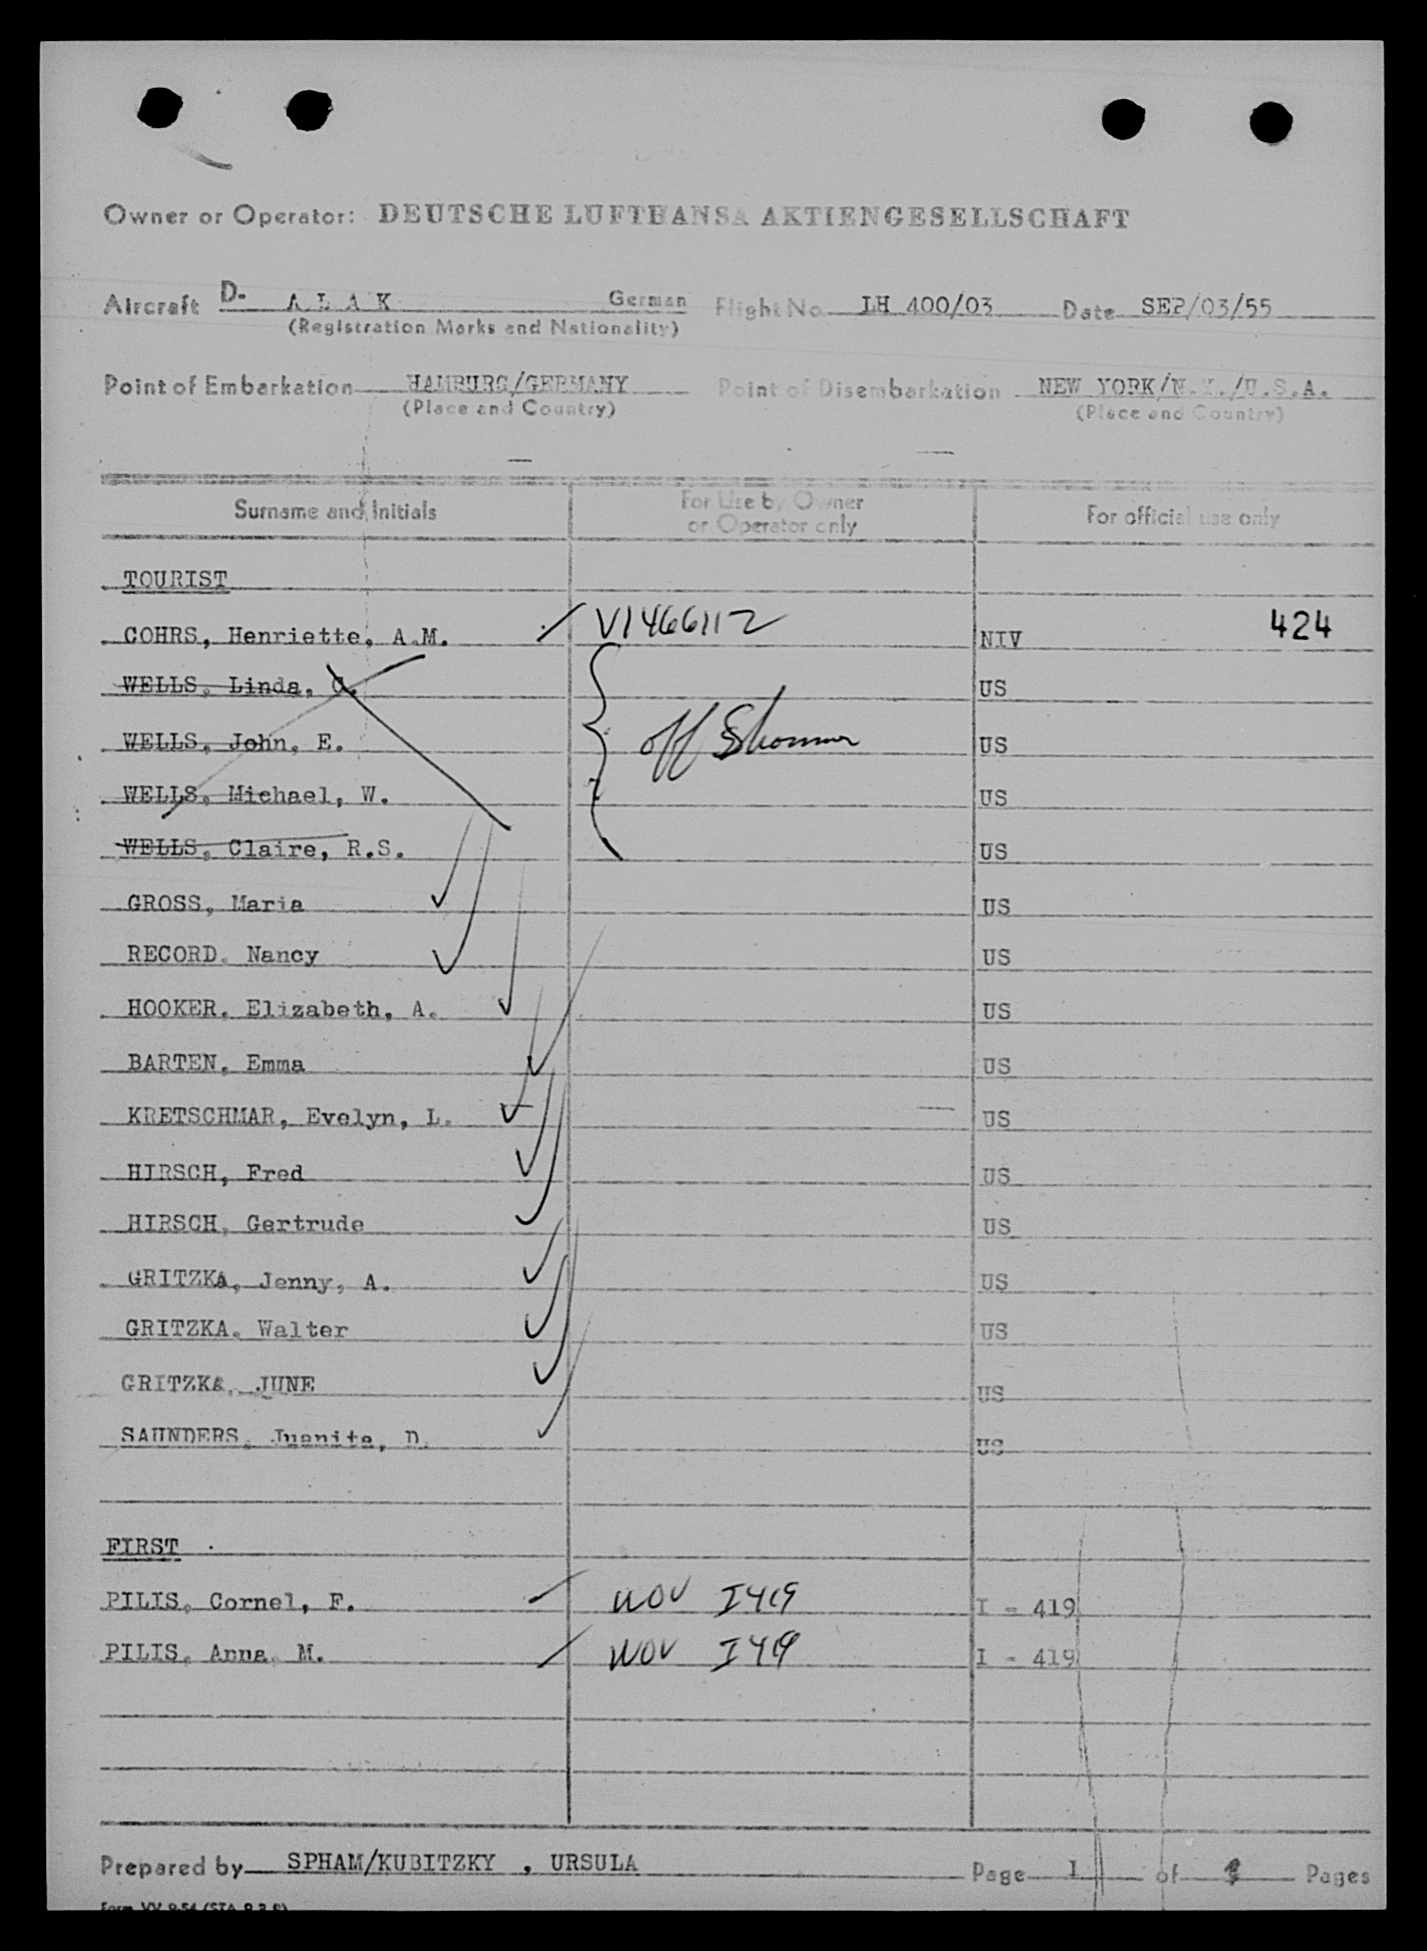 Owner or Operator: DEUTSCHE LUFTHANSA AKTIENGESELLSCHAFT
Aircraft D- A L A K German Flight No. LH 400/03 Date SEP/03/55
(Registration Marks and Nationality)
Point of Embarkation HAMBURG/GERMANY Point of Disembarkation NEW YORK/N.Y./U.S.A.
(Place and Country) (Place and Country)
Surname and Initials For Use by Owner or Operator only For official use only
TOURIST
COHRS, Henriette, A.M. V1466112 NIV 424
WELLS, Linda, C. US
WELLS, John, E. off US
WELLS, Michael, W. US
WELLS, Claire, R.S. US
GROSS, Maria US
RECORD, Nancy US
HOOKER, Elizabeth, A. US
BARTEN, Emma US
KRETSCHMAR, Evelyn, L. US
HIRSCH, Fred US
HIRSCH, Gertrude US
GRITZKA, Jenny, A. US
GRITZKA, Walter US
GRITZKA, JUNE US
SAUNDERS, Juanita, D. US
FIRST
PILIS, Cornel, F. I419 I - 419
PILIS, Anna, M. I419 I - 419
Prepared by SPHAM/KUBITZKY , URSULA Page 1 of Pages